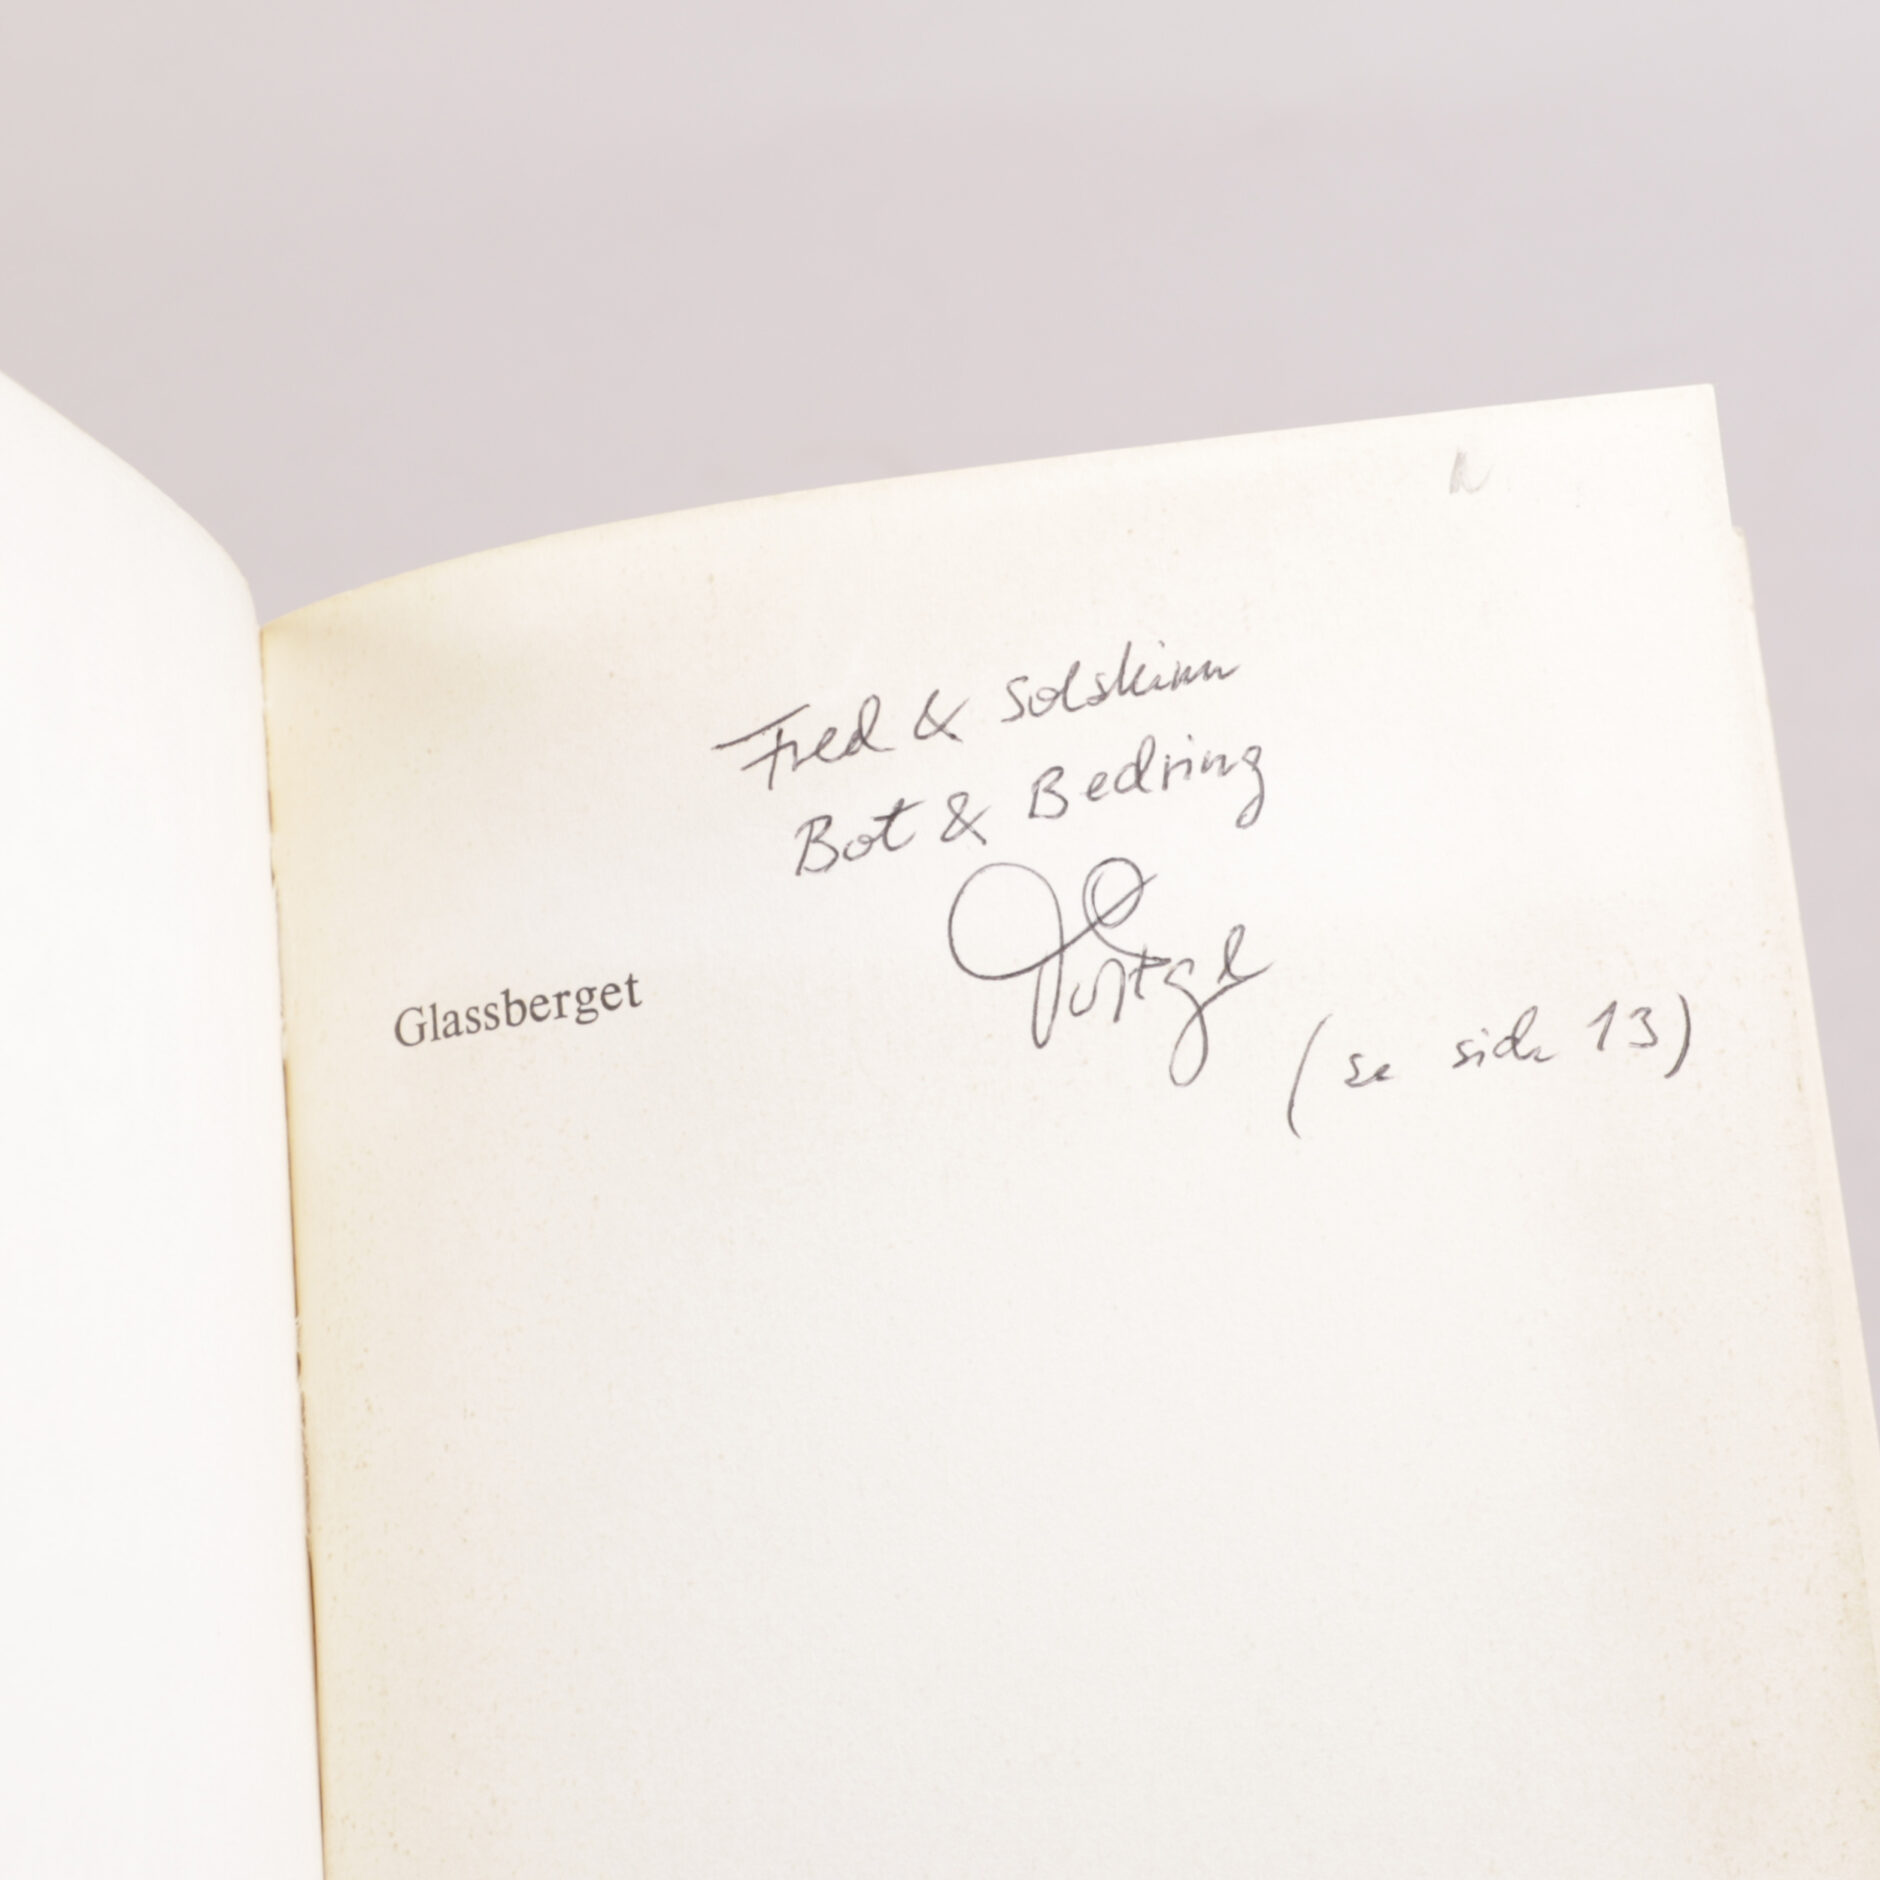 Fred & Solskinn
Bot & Bedring
Glassberget
(se side 13)